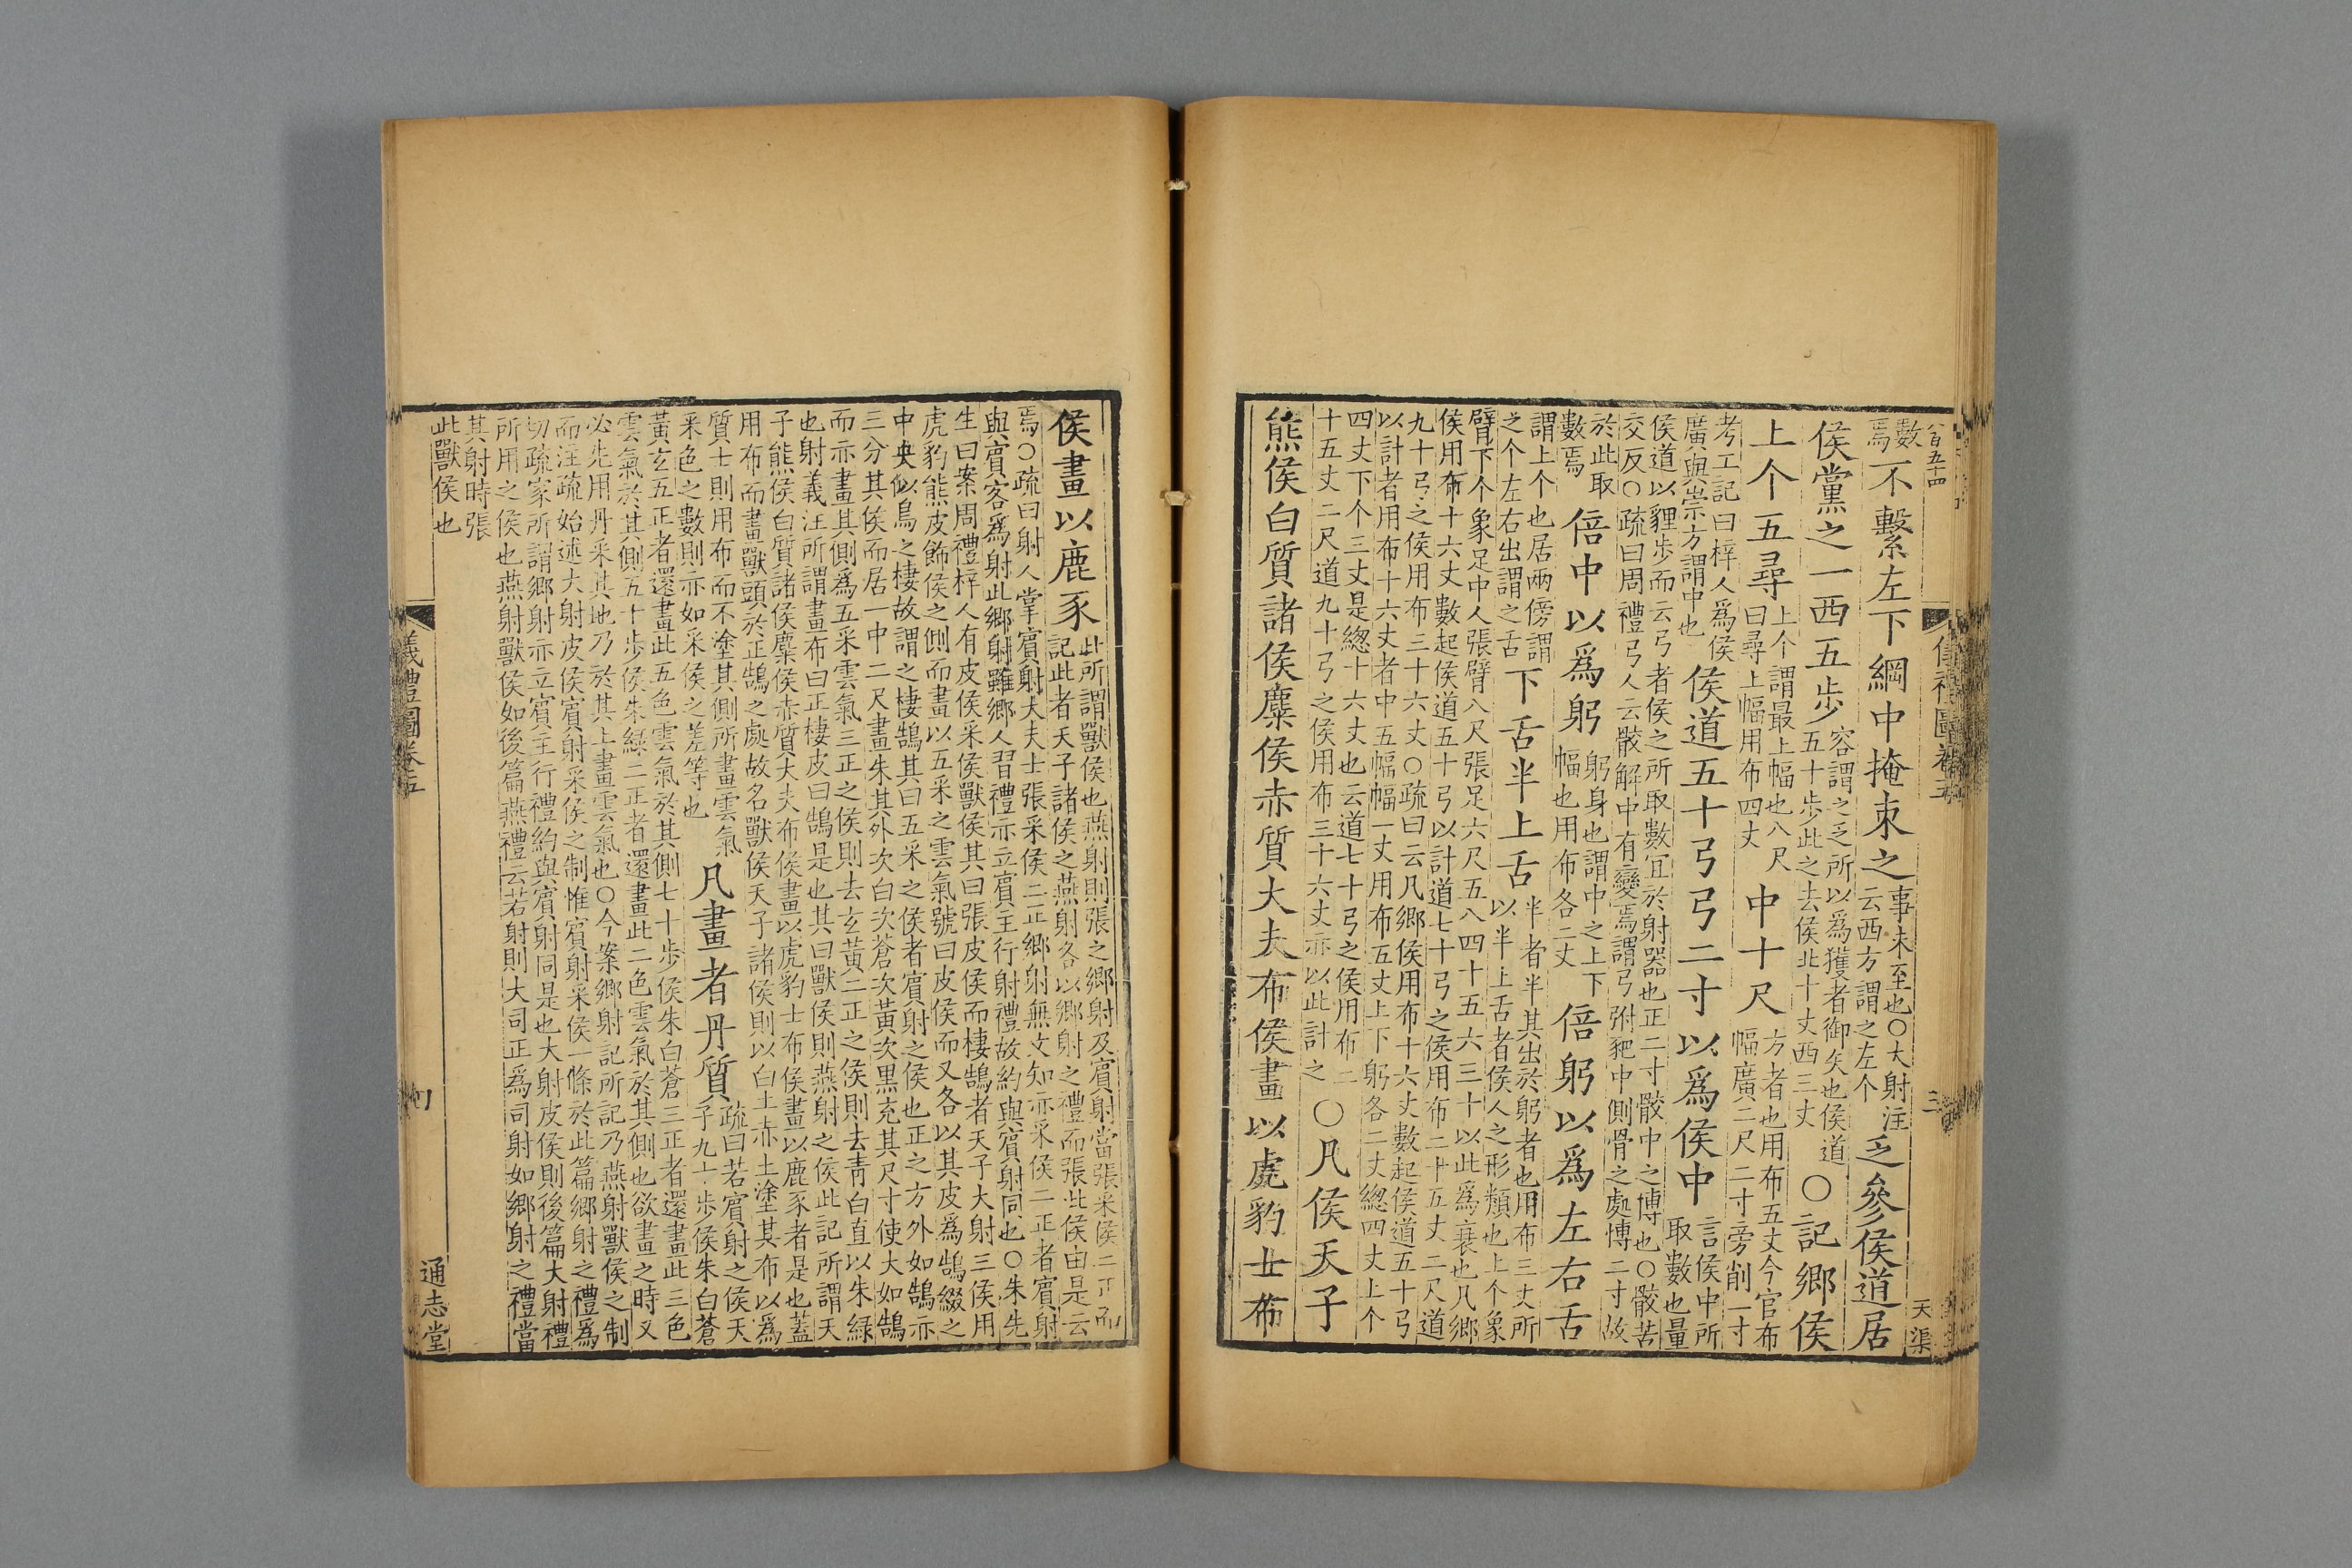 八百五十四
儀禮圖卷五
三
天渠
數焉不繫左下綱中掩束之事未至也○大射注云西方謂之左个乏參侯道居
侯黨之一西五步容謂之乏所以爲獲者御矢也侯道五十步此之去侯北十丈西三丈○記鄉侯
上个五尋上个謂最上幅也八尺曰尋上幅用布四丈中十尺方者也用布五丈今官布幅廣二尺二寸旁削一寸
考工記曰梓人爲侯廣與崇方謂中也侯道五十弓弓二寸以爲侯中言侯中所取數也量
侯道以貍步而云弓者侯之所取數宜於射器也正二寸骹中之博也○骹苦
交反○疏曰周禮弓人云骹解中有變焉謂弓弣把中側骨之處博二寸故
於此取數焉倍中以爲躬躬身也謂中之上下幅也用布各二丈倍躬以爲左右舌
謂上个也居兩傍謂之个左右出謂之舌下舌半上舌半者半其出於躬者也用布三丈所以半上舌者侯人之形類也上个象
臂下个象足中人張臂八尺張足六尺五八四十五六三十以此爲衰也凡鄉
侯用布十六丈數起侯道五十弓以計道七十弓之侯用布二十五丈二尺道
九十弓之侯用布三十六丈○疏曰云凡鄉侯用布十六丈數起侯道五十弓
以計者用布十六丈者中五幅幅一丈用布五丈上下躬各二丈總四丈上个
四丈下个三丈是總十六丈也云道七十弓之侯用布二十五丈二尺道九十弓之侯用布三十六丈亦以此計之○凡侯天子
熊侯白質諸侯麋侯赤質大夫布侯畫以虎豹士布
侯畫以鹿豕此所謂獸侯也燕射則張之鄉射及賓射當張采侯二正而記此者天子諸侯之燕射各以鄉射之禮而張此侯由是云
焉○疏曰射人掌賓射大夫士張采侯二正鄉射無文知亦采侯二正者賓射
與賓客爲射此鄉射雖鄉人習禮亦立賓主行射禮故約與賓射同也○朱先
生曰案周禮梓人有皮侯采侯獸侯其曰張皮侯而棲鵠者天子大射三侯用
虎豹熊皮飾侯之側而畫以五采之雲氣號曰皮侯而又各以其皮爲鵠綴之
中央似鳥之棲故謂之棲鵠其曰五采之侯者賓射之侯也正之方外如鵠亦
三分其侯而居一中二尺畫朱其外次白次蒼次黃次黑充其尺寸使大如鵠
而亦畫其側爲五采雲氣三正之侯則去玄黃二正之侯則去青白直以朱綠
也射義注所謂畫布曰正棲皮曰鵠是也其曰獸侯則燕射之侯此記所謂天
子熊侯白質諸侯麋侯赤質大夫布侯畫以虎豹士布侯畫以鹿豕者是也蓋
用布而畫獸頭於正鵠之處故名獸侯天子諸侯則以白土赤土塗其布以爲
質士則用布而不塗其側所畫雲氣采色之數則亦如采侯之差等也凡畫者丹質疏曰若賓射之侯天子九十步侯朱白蒼
黃玄五正者還畫此五色雲氣於其側七十步侯朱白蒼三正者還畫此三色
雲氣於其側五十步侯朱綠二正者還畫此二色雲氣於其側也欲畫之時又
必先用丹采其地乃於其上畫雲氣也○今案鄉射記所記乃燕射獸侯之制
而注疏始述大射皮侯賓射采侯之制惟賓射采侯一條於此篇鄉射之禮爲
切疏家所謂鄉射亦立賓主行禮約與賓射同是也大射皮侯則後篇大射禮
所用之侯也燕射獸侯如後篇燕禮云若射則大司正爲司射如鄉射之禮當
其射時張
此獸侯也
儀禮圖卷五
通志堂